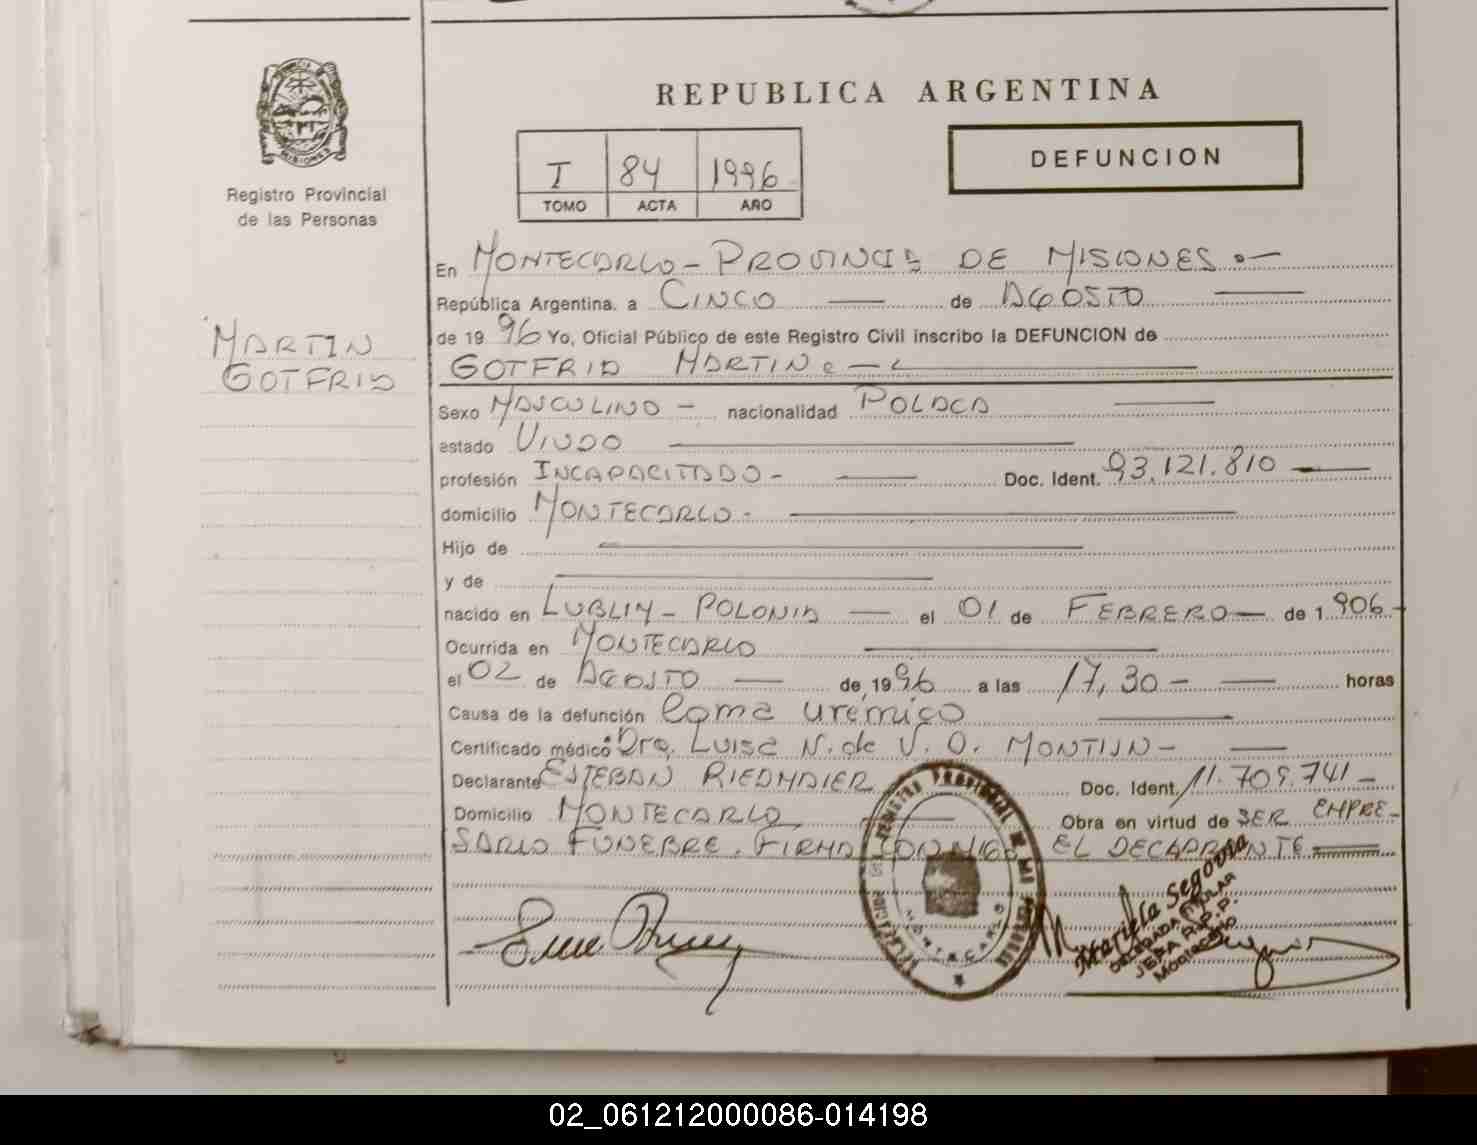 REPUBLICA ARGENTINA
MISIONES
Registro Provincial
de las Personas
I 84 1996
TOMO ACTA AÑO
DEFUNCION
En MONTECARLO - PROVINCIA DE MISIONES.-
República Argentina, a CINCO de AGOSTO
de 19 96 Yo, Oficial Público de este Registro Civil inscribo la DEFUNCION de
MARTIN
GOTFRID
GOTFRID MARTIN
Sexo MASCULINO - nacionalidad POLACA
estado VIUDO
profesión INCAPACITADO - Doc. Ident. 93.121.810
domicilio MONTECARLO -
Hijo de
y de
nacido en LUBLIN - POLONIA el 01 de FEBRERO de 1.906.-
Ocurrida en MONTECARLO
el 02 de AGOSTO de 1996 a las 17,30 - horas
Causa de la defunción Coma urémico
Certificado médico Dra. Luisa N. de V. O. MONTIJN -
Declarante ESTEBAN RIEDMAIER Doc. Ident. 11.709.741 -
Domicilio MONTECARLO Obra en virtud de SER EMPRE-
SARIO FUNEBRE. FIRMA CONMIGO EL DECLARANTE
REGISTRO PROVINCIAL DE
MONTECARLO
Mariela Segovia
DELEGADA TITULAR
JEFA R.P.P.
Montecarlo
02_061212000086-014198